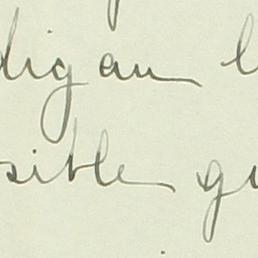 digan l
sible gu